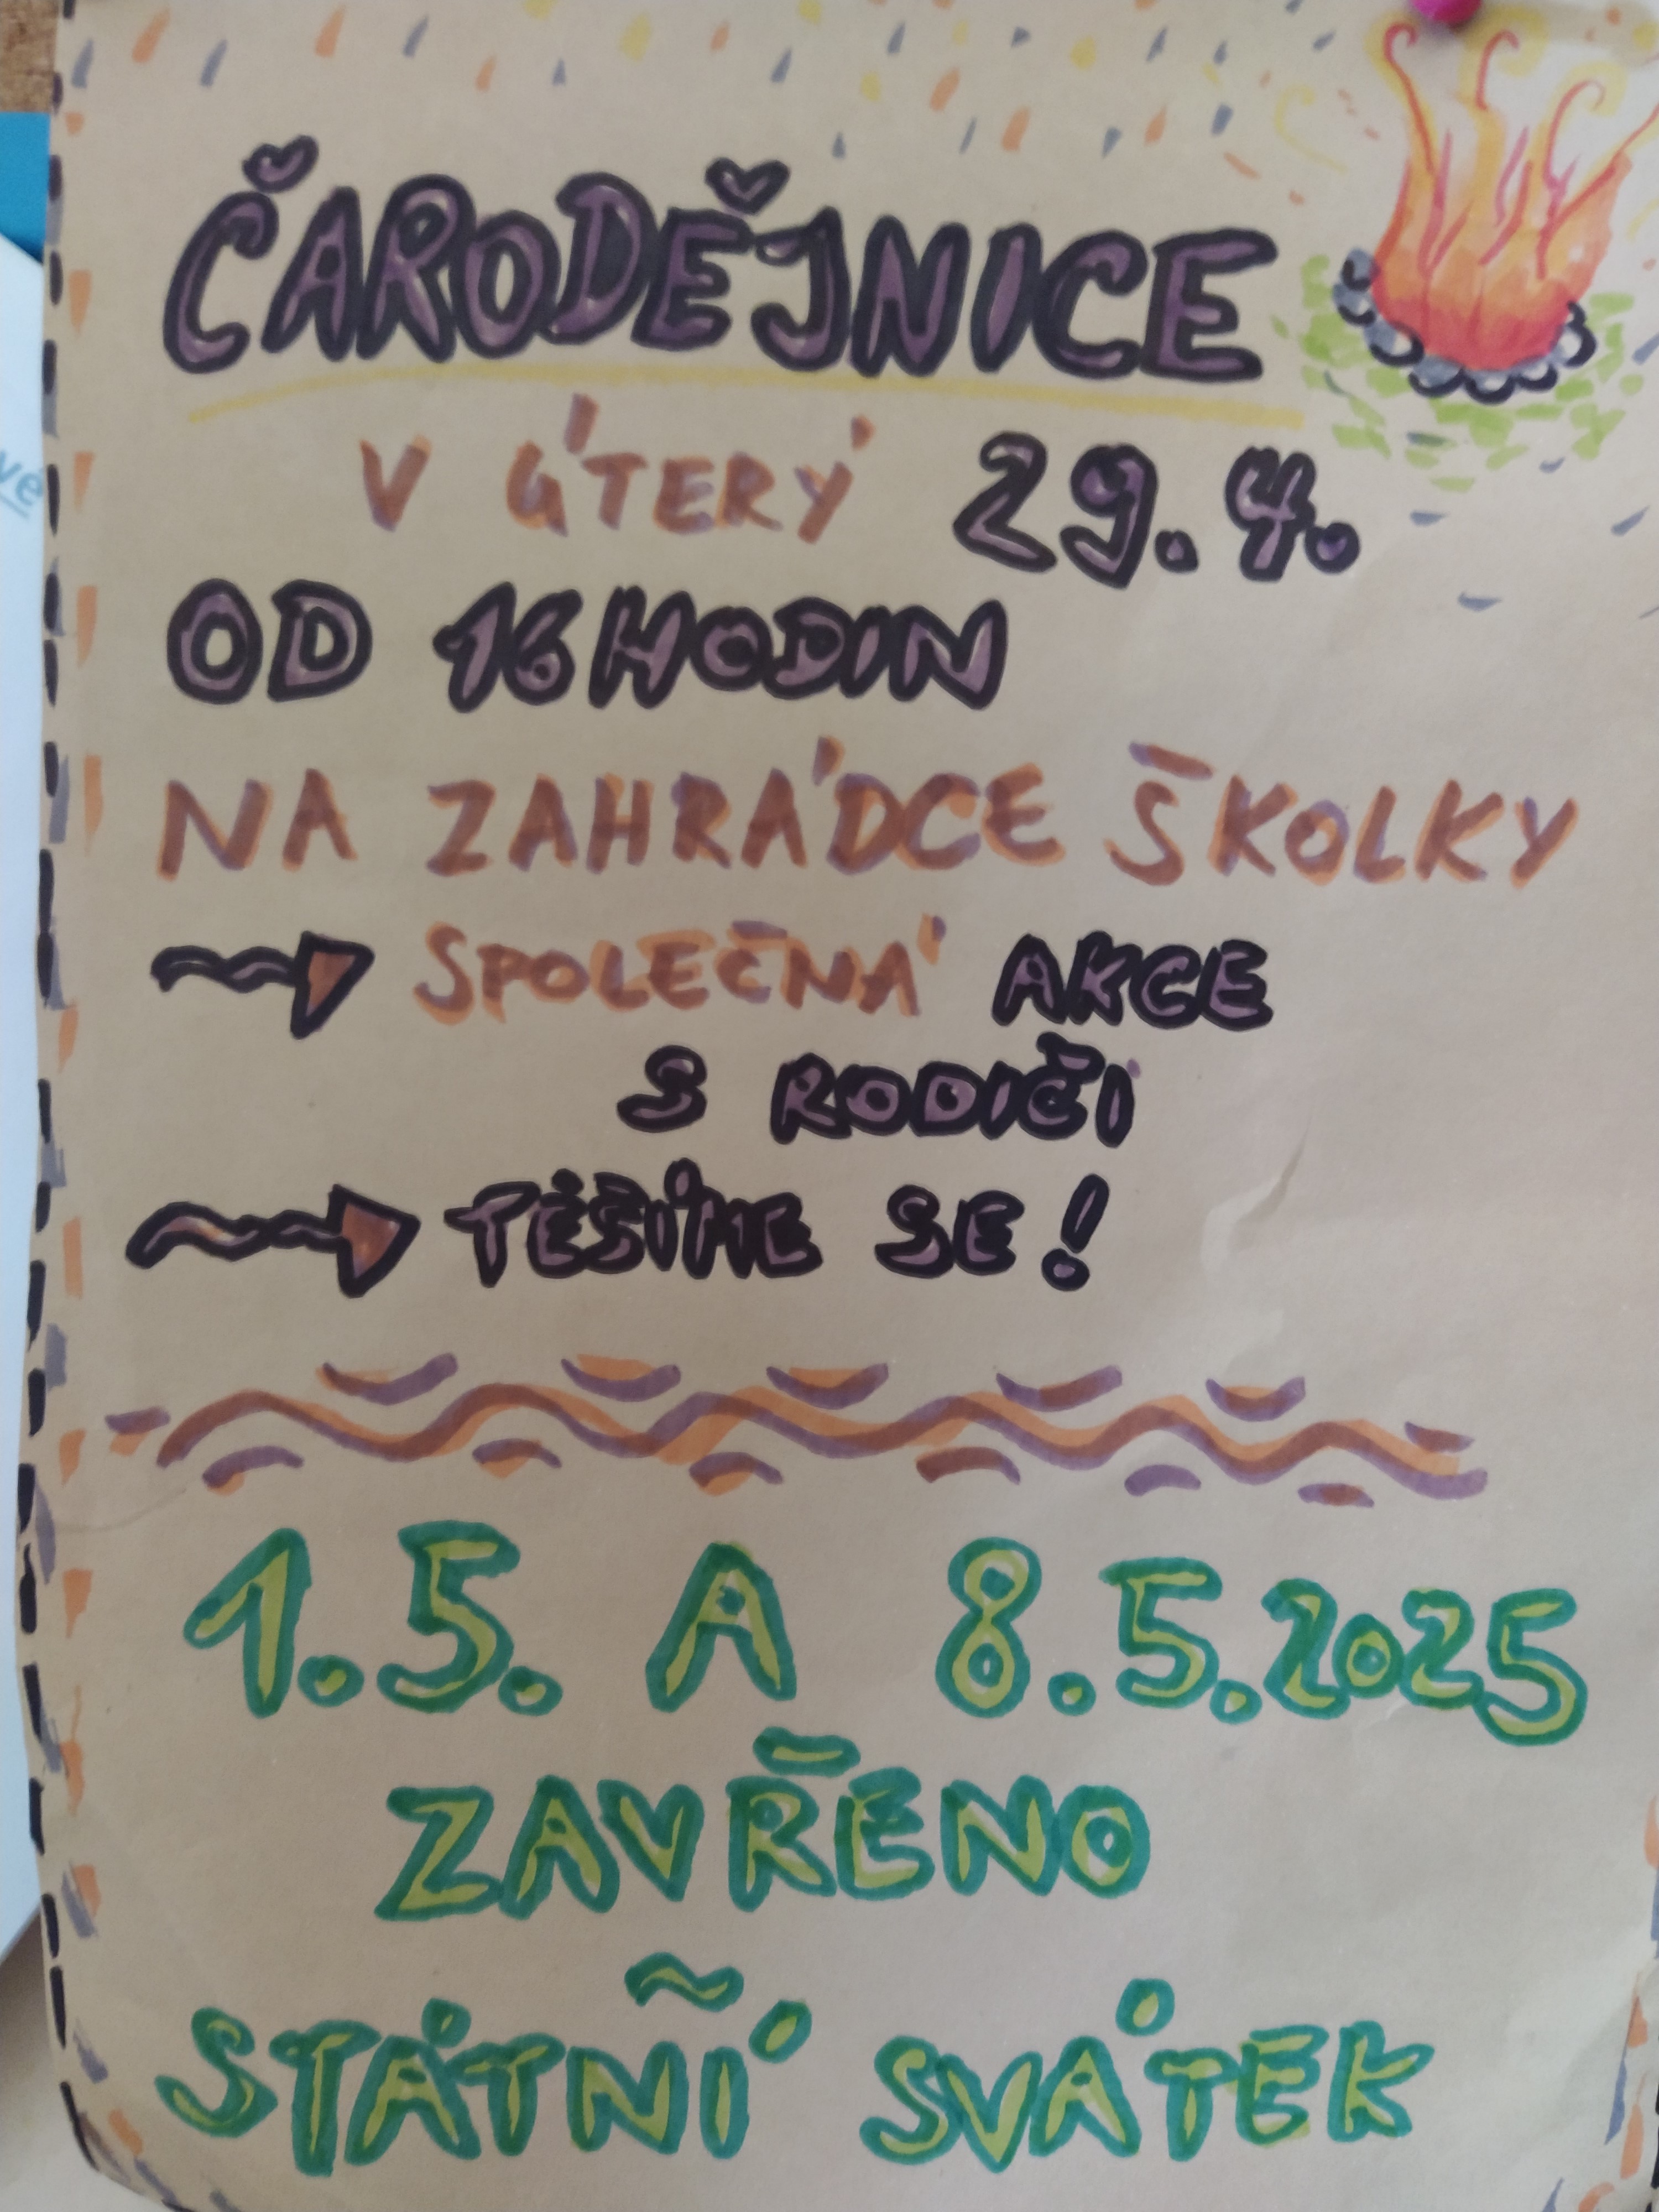 ČARODĚJNICE
V ÚTERÝ 29.4.
OD 16 HODIN
NA ZAHRÁDCE ŠKOLKY
SPOLEČNÁ AKCE
S RODIČI
TĚŠÍME SE!
1.5. A 8.5.2025
ZAVŘENO
STÁTŇÍ SVÁTEK